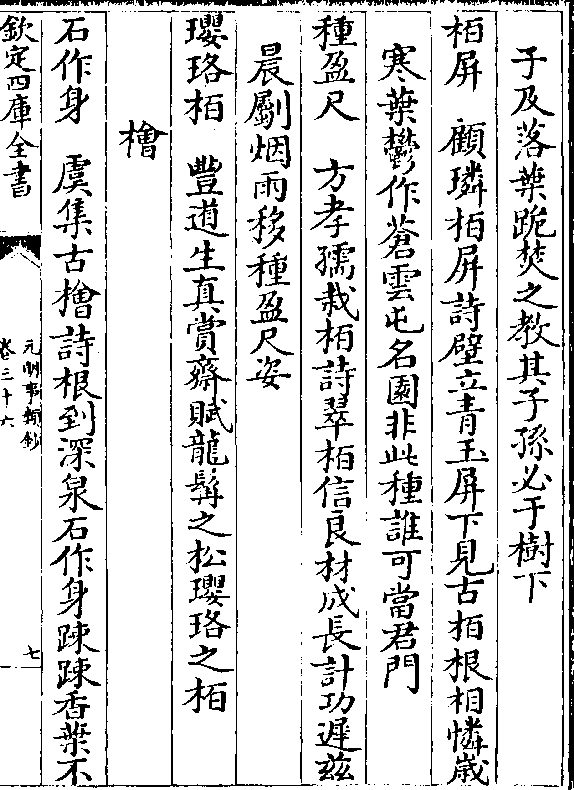 子及落葉跪焚之教其子孫必于樹下
栢屏　顧璘栢屏詩壁立青玉屏下見古栢根相憐歳
寒葉鬱作蒼雲屯名園非此種誰可當君門
種盈尺　方孝孺栽栢詩翠栢信良材成長計功遲兹
晨劚烟雨移種盈尺姿
瓔珞栢　豐道生真賞齋賦龍髯之松瓔珞之栢
檜
石作身　虞集古檜詩根到深泉石作身踈踈香葉不
欽定四庫全書
元明事類鈔
卷三十六
七